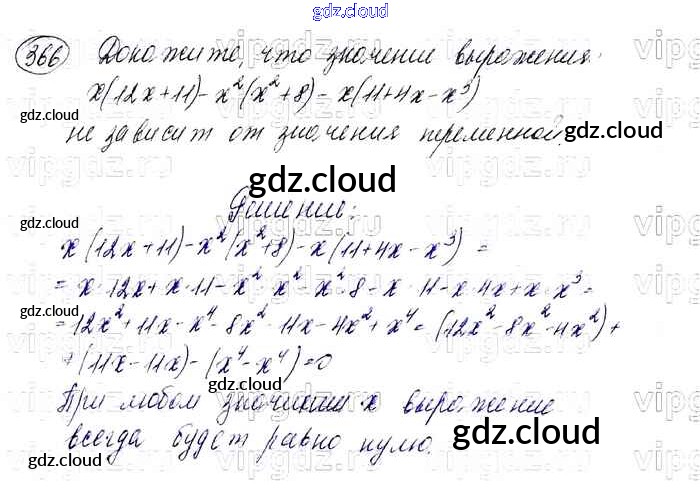 gdz.cloud
366 Докажите, что значение выражения:
x(12x+11)-x²(x²+8)-x(11+4x-x³)
не зависит от значения переменной.
gdz.cloud
Решение:
x(12x+11)-x²(x²+8)-x(11+4x-x³)=
=x·12x+x·11-x²·x²-x²·8-x·11-x·4x+x·x³=
=12x²+11x-x⁴-8x²-11x-4x²+x⁴=(12x²-8x²-4x²)+
+(11x-11x)-(x⁴-x⁴)=0
При любом значении x выражение
всегда будет равно нулю.
gdz.cloud